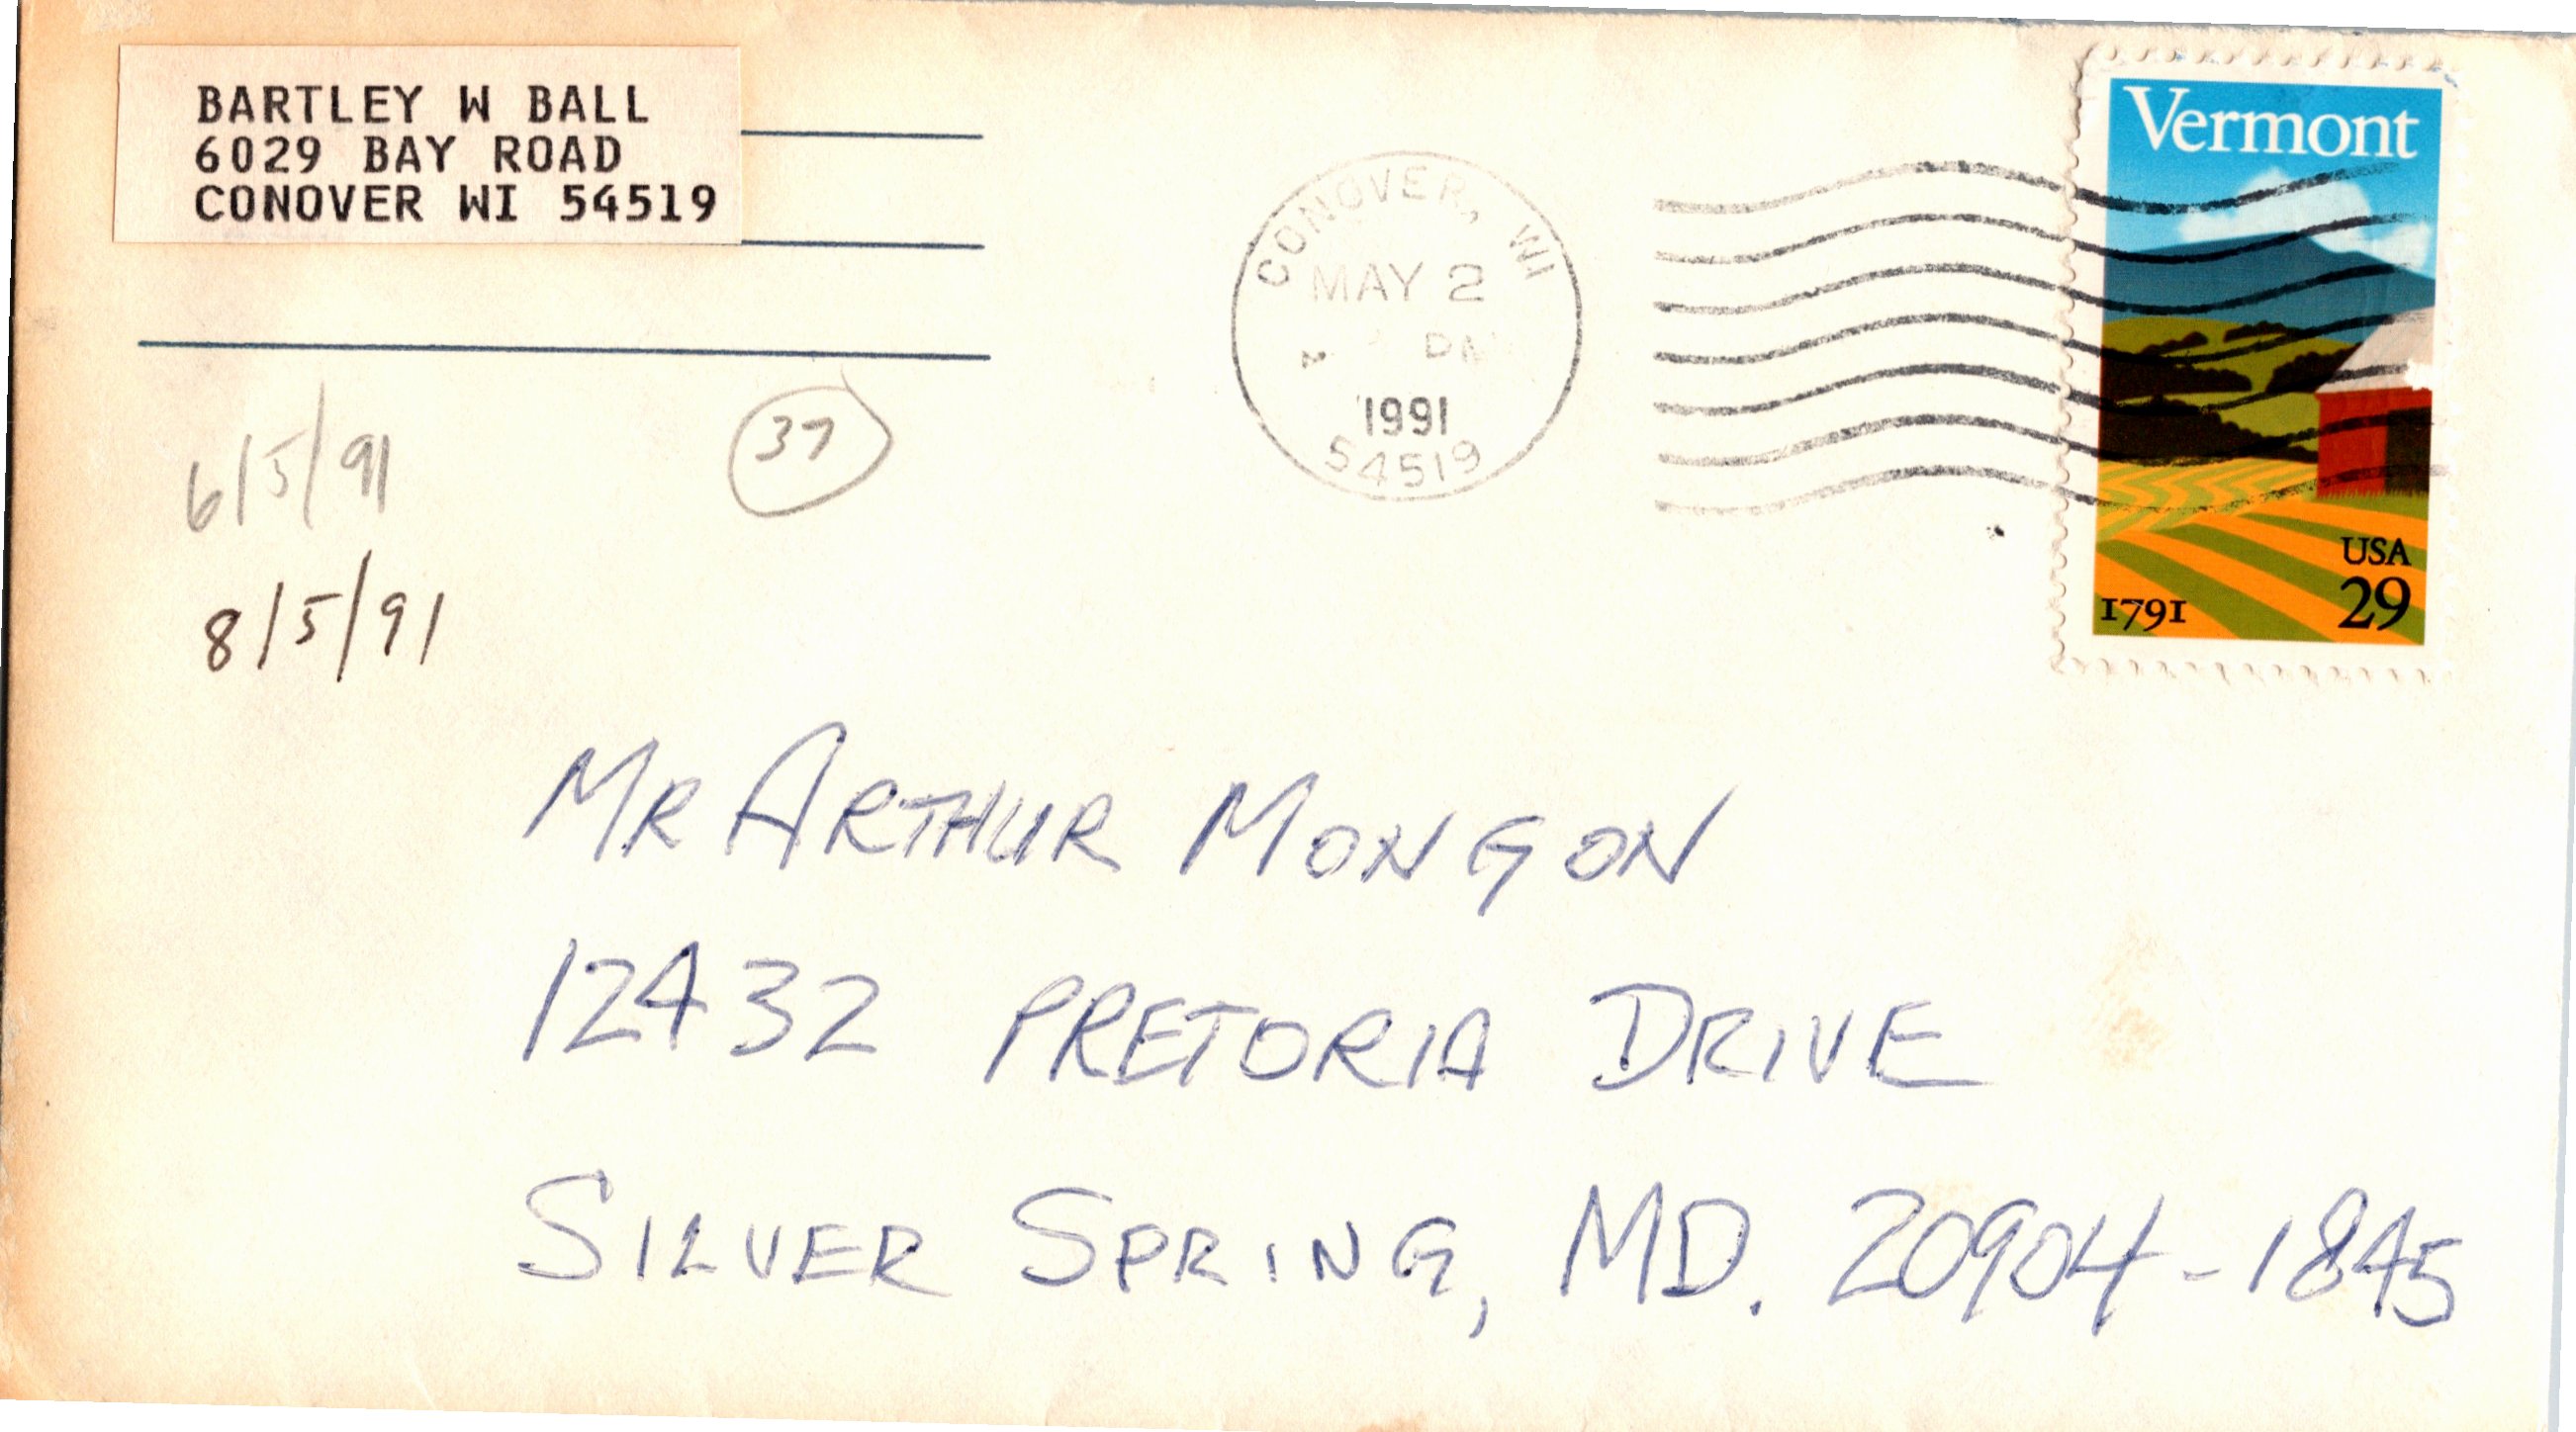 BARTLEY W BALL
6029 BAY ROAD
CONOVER WI 54519
CONOVER, WI
MAY 2
PM
1991
54519
Vermont
USA
29
1791
37
6/5/91
8/5/91
MR ARTHUR MONGON
12432 PRETORIA DRIVE
SILVER SPRING, MD. 20904-1845